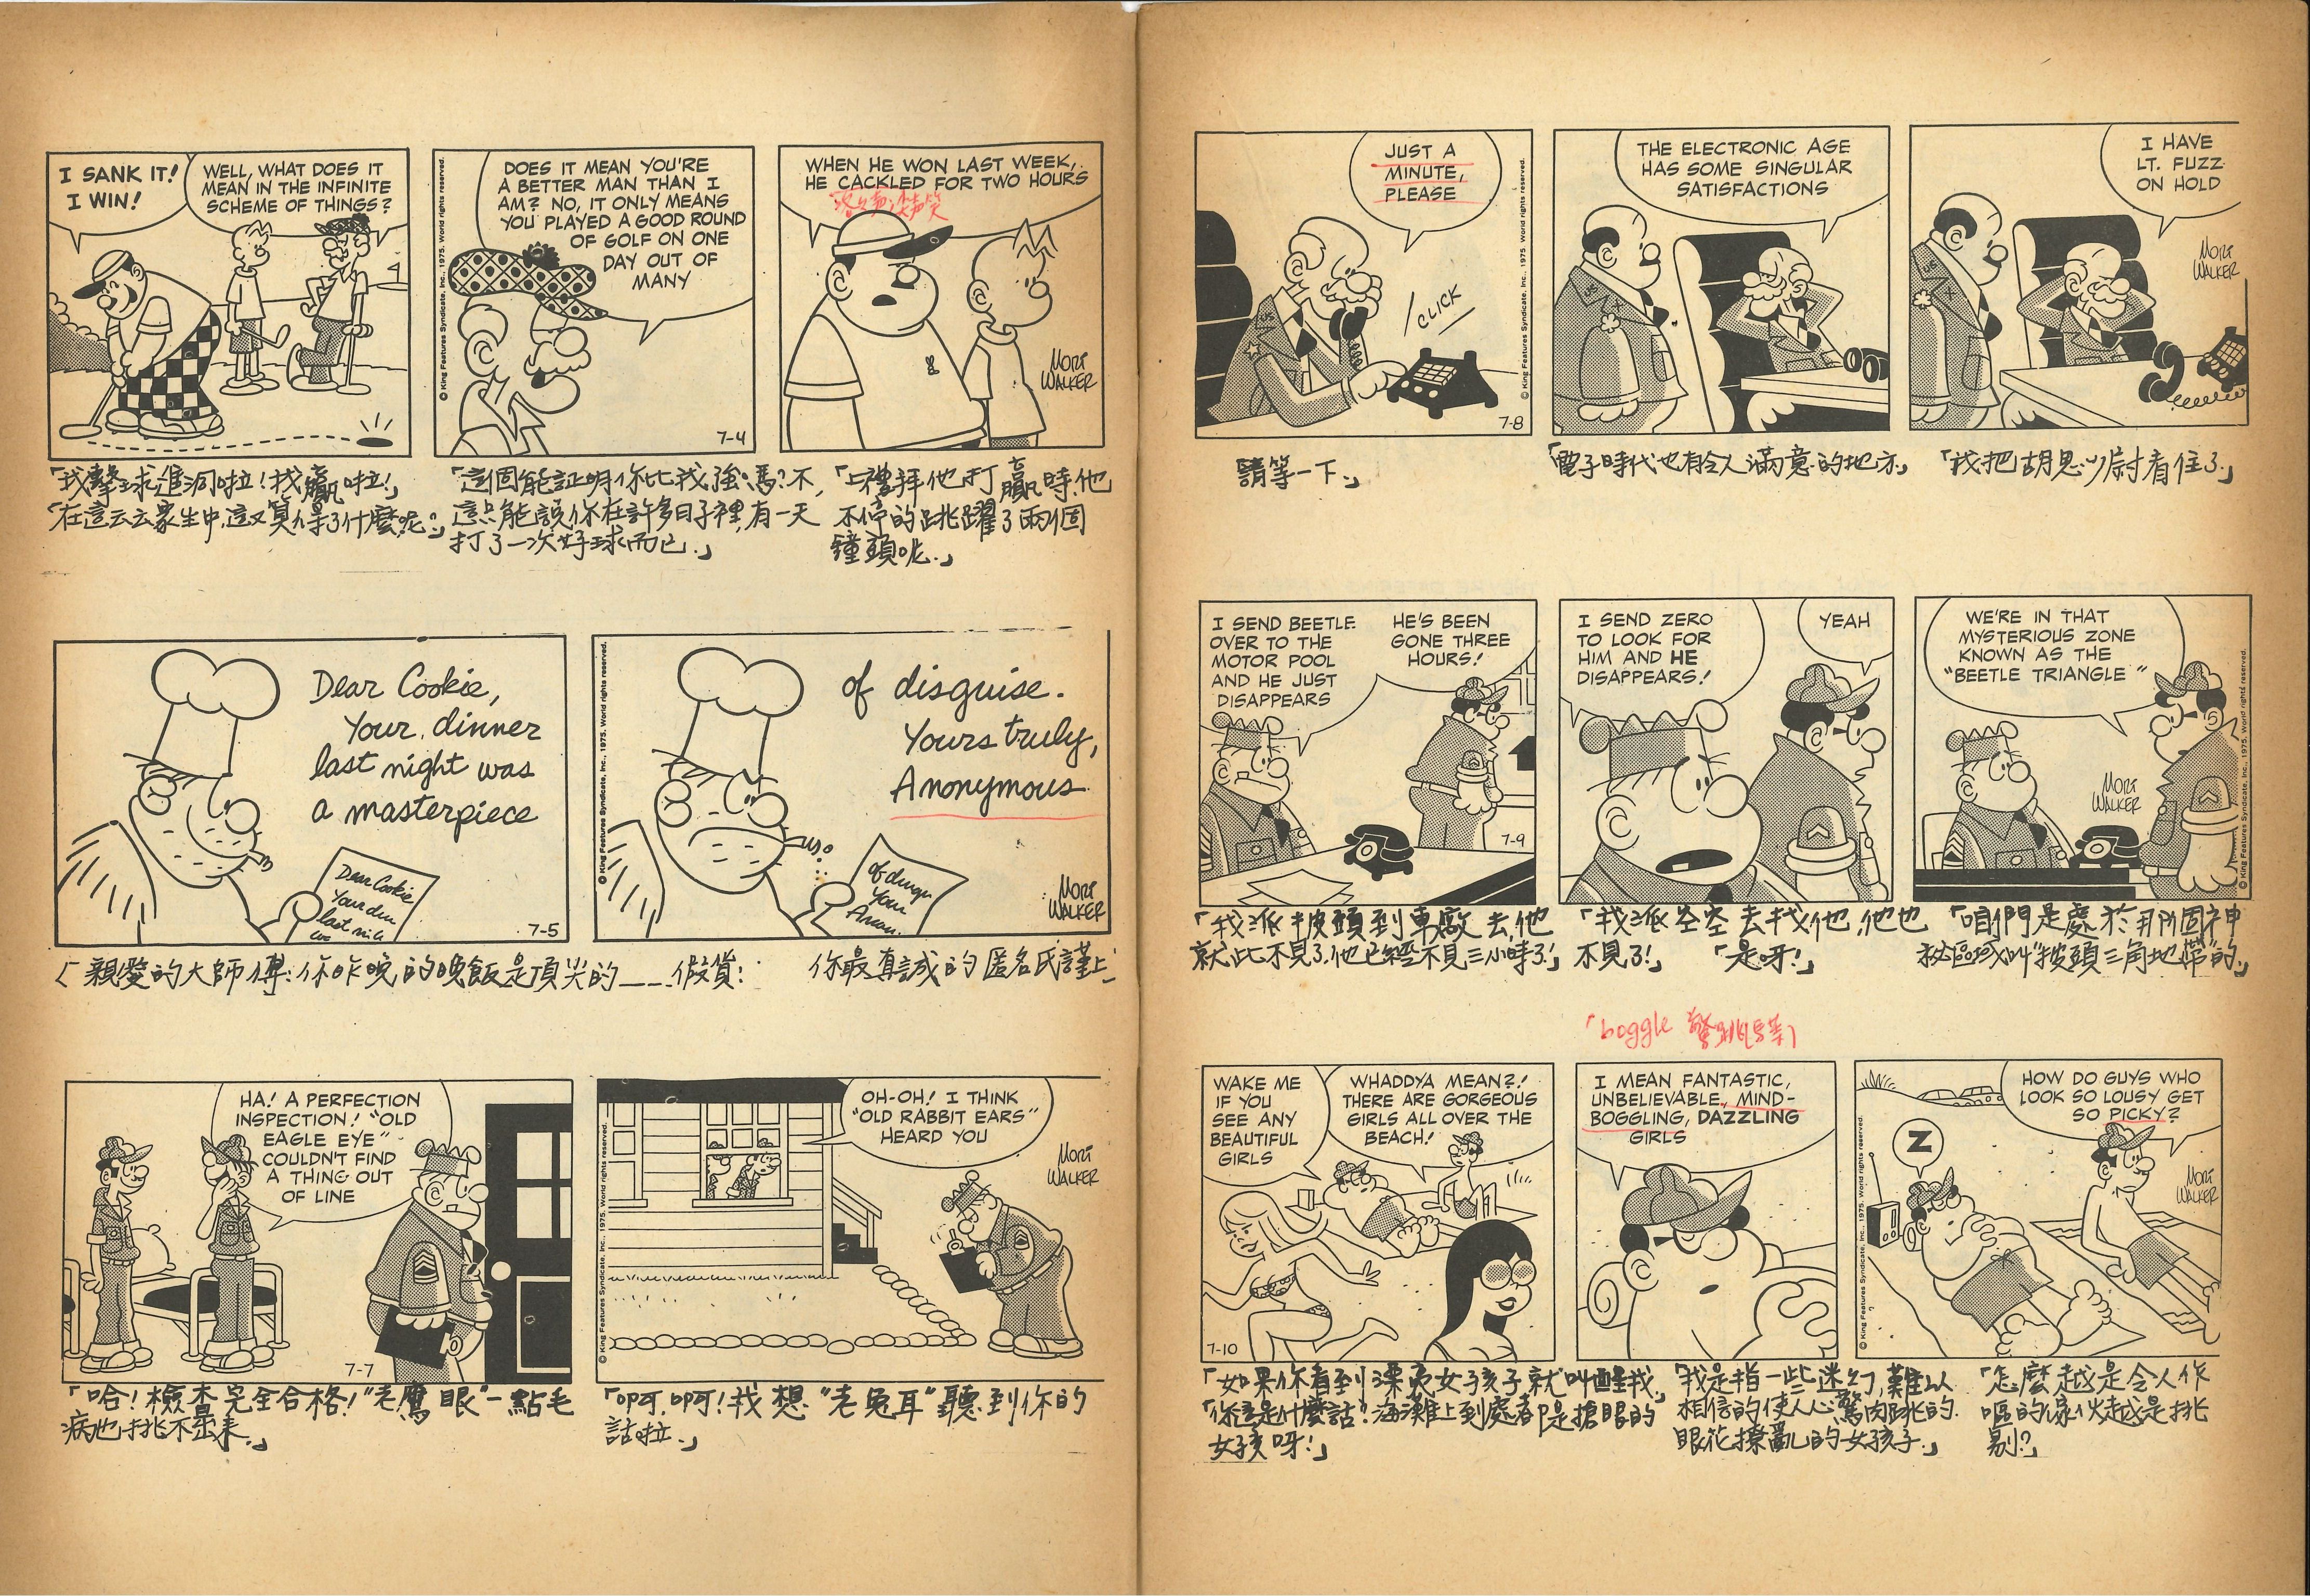 I SANK IT!
I WIN!
WELL, WHAT DOES IT
MEAN IN THE INFINITE
SCHEME OF THINGS?
© King Features Syndicate, Inc., 1975. World rights reserved.
DOES IT MEAN YOU'RE
A BETTER MAN THAN I
AM? NO, IT ONLY MEANS
YOU PLAYED A GOOD ROUND
OF GOLF ON ONE
DAY OUT OF
MANY
7-4
WHEN HE WON LAST WEEK,
HE CACKLED FOR TWO HOURS
MORT
WALKER
「我擊球進洞啦!我贏啦!」
「在這云云眾生中,這又算得了什麼呢?」
「這個能証明你比我強嗎?不,
這只能說你在許多日子裡,有一天
打了一次好球而已.」
「上禮拜他打贏時,他
不停的跳躍了兩個
鐘頭呢.」
Dear Cookie,
Your dinner
last night was
a masterpiece
Dear Cookie
Your din
last nig
wa
7-5
© King Features Syndicate, Inc., 1975. World rights reserved.
of disguise.
Yours truly,
Anonymous
of disgu
Your
Anon.
MORT
WALKER
「親愛的大師傅:你昨晚的晚飯是頂尖的___假貨!
你最真誠的匿名氏謹上」
HA! A PERFECTION
INSPECTION! "OLD
EAGLE EYE"
COULDN'T FIND
A THING OUT
OF LINE
7-7
© King Features Syndicate, Inc., 1975. World rights reserved.
OH-OH! I THINK
"OLD RABBIT EARS"
HEARD YOU
MORT
WALKER
「哈!檢查完全合格!"老鷹眼"一點毛
病也挑不出來.」
「啊啊!我想"老兔耳"聽到你的
話啦.」
JUST A
MINUTE,
PLEASE
CLICK
US
7-8
© King Features Syndicate, Inc., 1975. World rights reserved.
THE ELECTRONIC AGE
HAS SOME SINGULAR
SATISFACTIONS
US
I HAVE
LT. FUZZ
ON HOLD
US
MORT
WALKER
「請等一下.」
「電子時代也有令人滿意的地方」
「我把胡思少尉看住了.」
I SEND BEETLE
OVER TO THE
MOTOR POOL
AND HE JUST
DISAPPEARS
HE'S BEEN
GONE THREE
HOURS!
7-9
I SEND ZERO
TO LOOK FOR
HIM AND HE
DISAPPEARS!
YEAH
WE'RE IN THAT
MYSTERIOUS ZONE
KNOWN AS THE
"BEETLE TRIANGLE"
MORT
WALKER
© King Features Syndicate, Inc., 1975. World rights reserved.
「我派披頭到車廠去,他
就此不見了.他已經不見三小時了!」
「我派零零去找他,他也
不見了!」
「是呀!」
「咱們是處於那個神
秘區域叫"披頭三角地帶"的.」
「boggle
WAKE ME
IF YOU
SEE ANY
BEAUTIFUL
GIRLS
WHADDYA MEAN?!
THERE ARE GORGEOUS
GIRLS ALL OVER THE
BEACH!
7-10
I MEAN FANTASTIC,
UNBELIEVABLE, MIND-
BOGGLING, DAZZLING
GIRLS
© King Features Syndicate, Inc., 1975. World rights reserved.
Z
HOW DO GUYS WHO
LOOK SO LOUSY GET
SO PICKY?
MORT
WALKER
「如果你看到漂亮女孩子就叫醒我」
「你這是什麼話?海灘上到處都是搶眼的
女孩呀!」
「我是指一些迷幻,難以
相信的使人心驚肉跳的.
眼花撩亂的女孩子.」
「怎麼越是令人作
嘔的傢伙越是挑
剔?」